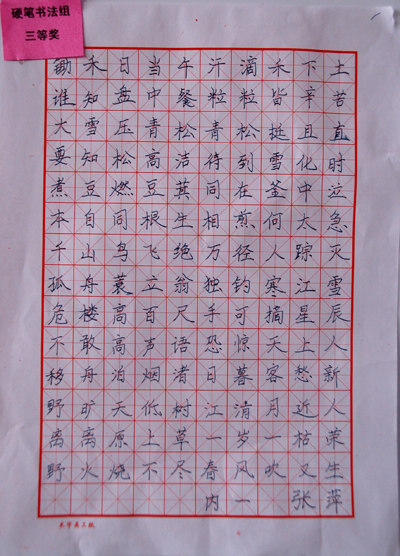 硬笔书法组
三等奖
锄禾日当午汗滴禾下土
谁知盘中餐粒粒皆辛苦
大雪压青松青松挺且直
要知松高洁待到雪化时
煮豆燃豆萁同在釜中泣
本自同根生相煎何太急
千山鸟飞绝万径人踪灭
孤舟蓑立翁独钓寒江雪
危楼高百尺手可摘星辰
不敢高声语恐惊天上人
移舟泊烟渚日暮客愁新
野旷天低树江清月近人
离离原上草一岁一枯荣
野火烧不尽春风吹又生
内一 张萍